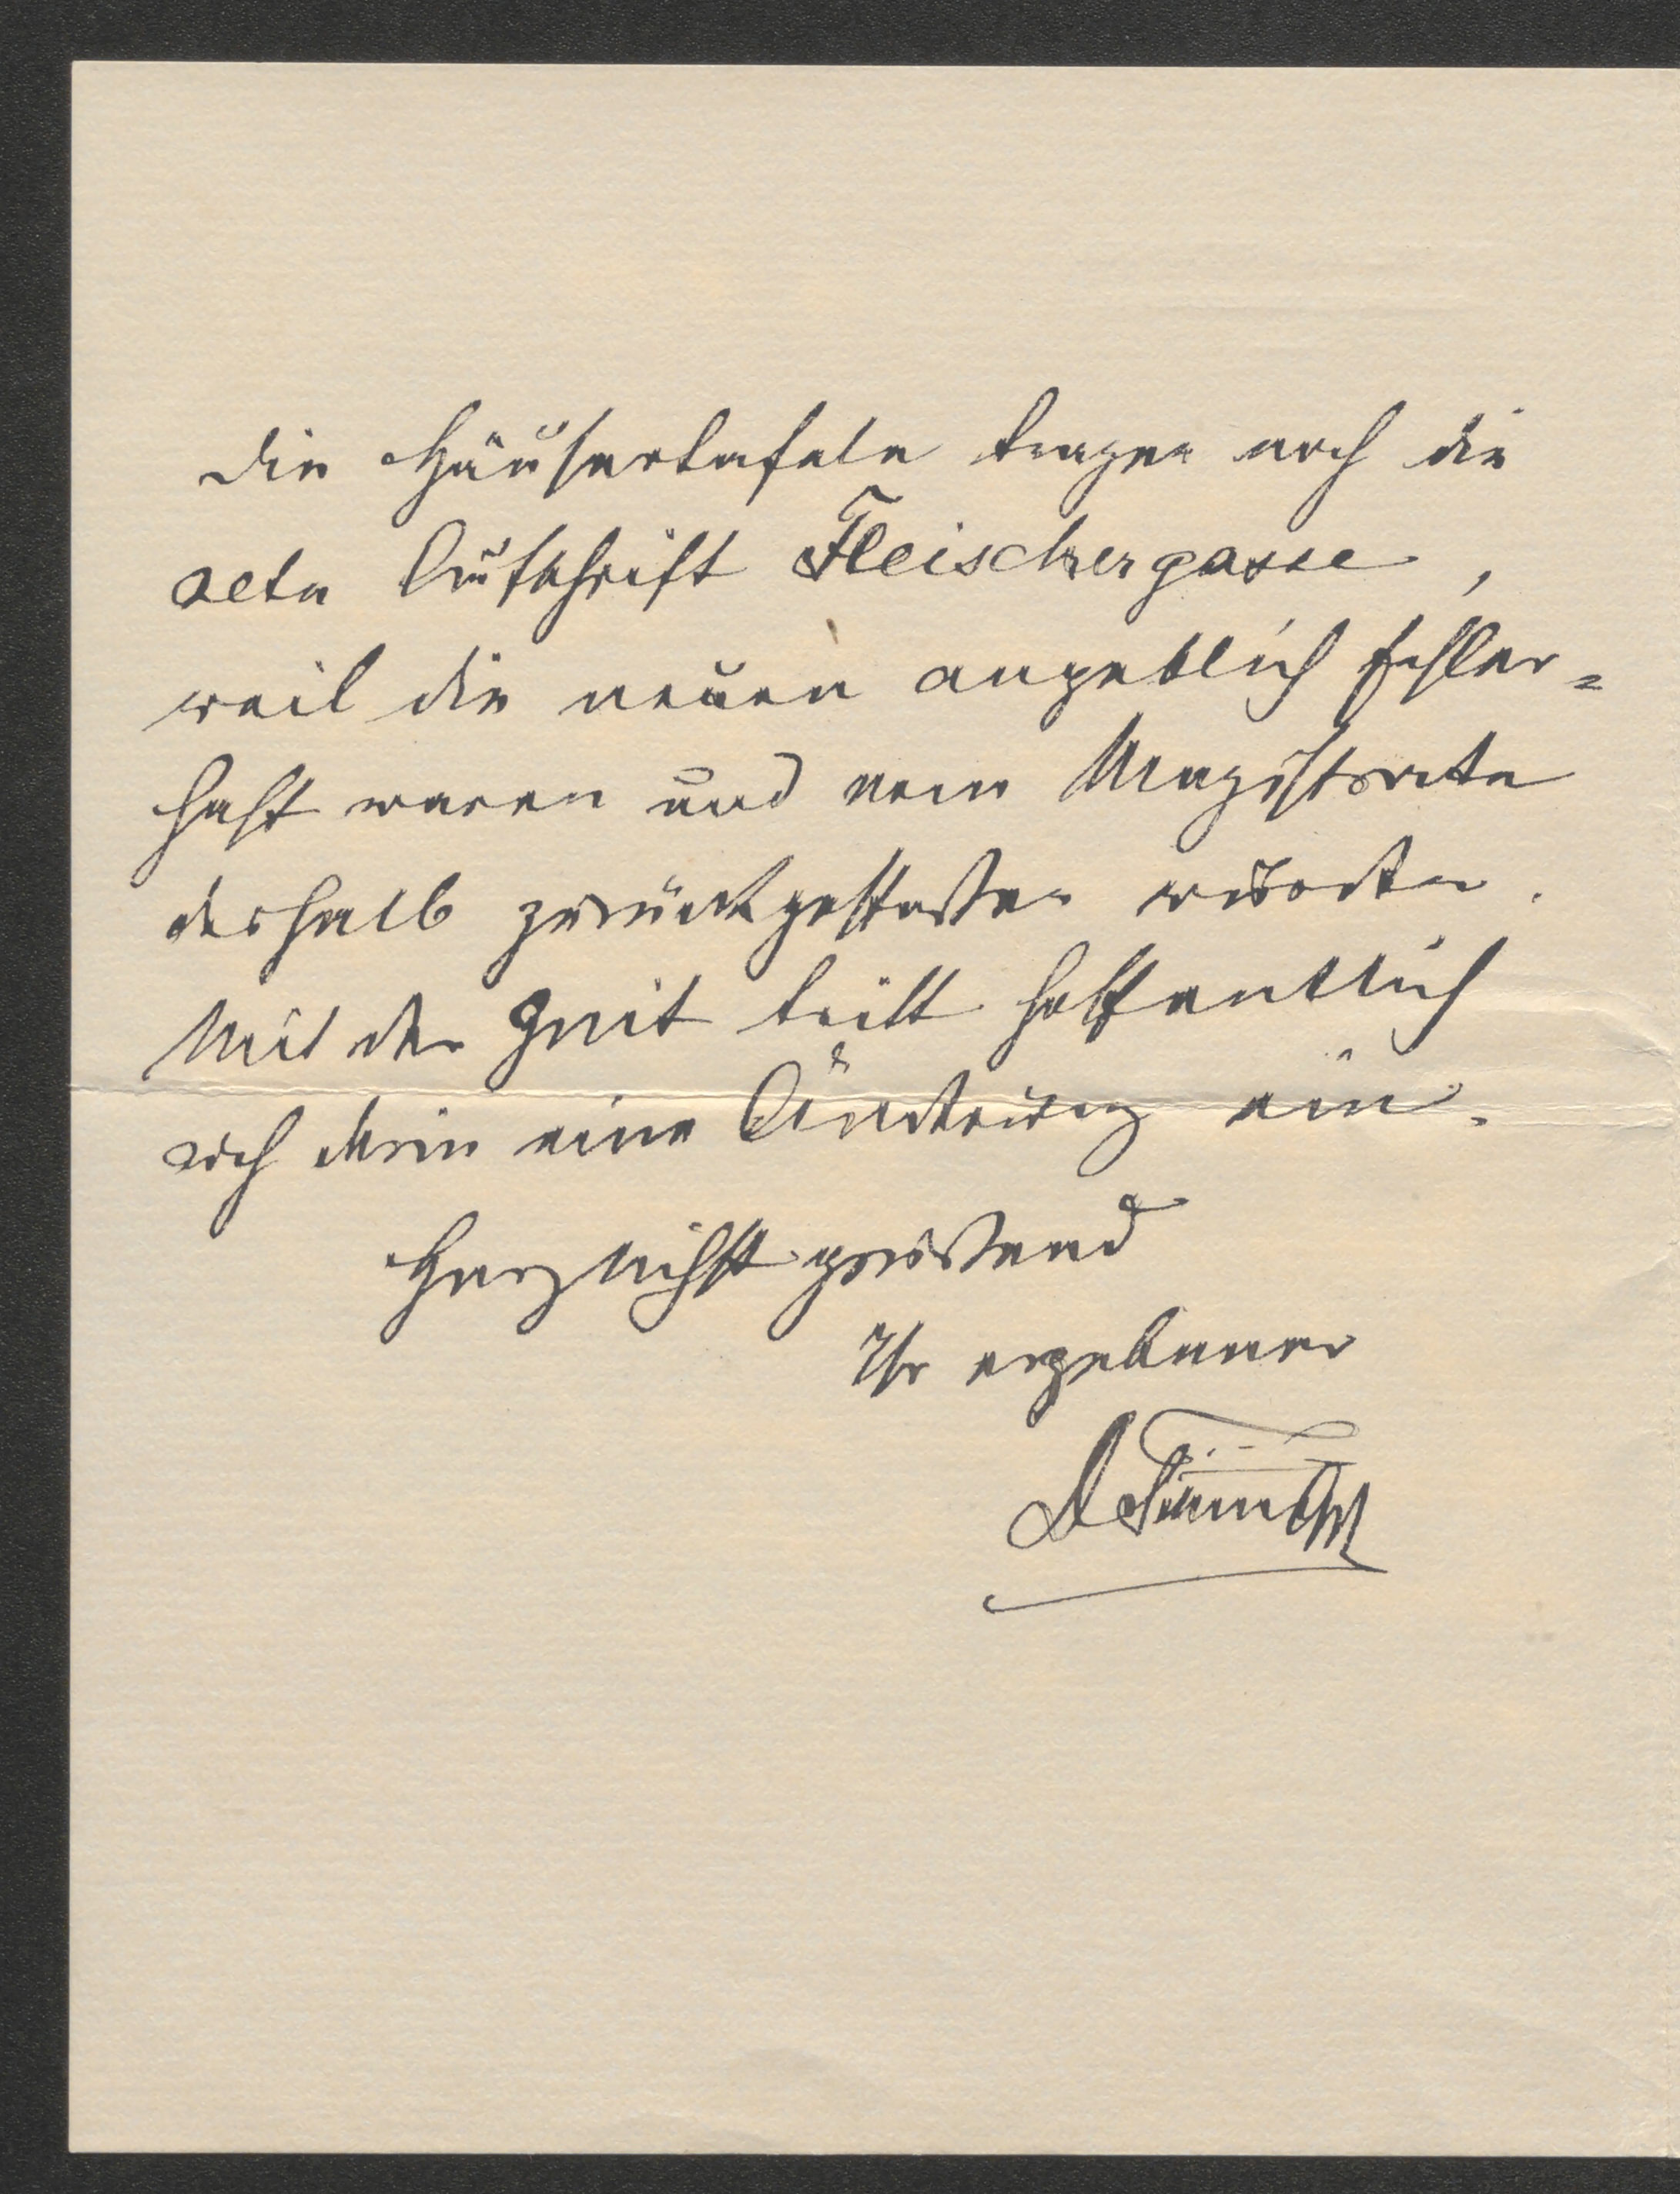 Die Häusertafeln tragen noch die
alte Aufschrift Fleischergasse,
weil die neuen angeblich fehler=
haft waren und vom Magistrate
deshalb zurückgestoßen wurden.
Mit der Zeit tritt hoffentlich
auch darin eine Änderung ein.
Herzlichst grüßend
Ihr ergebener